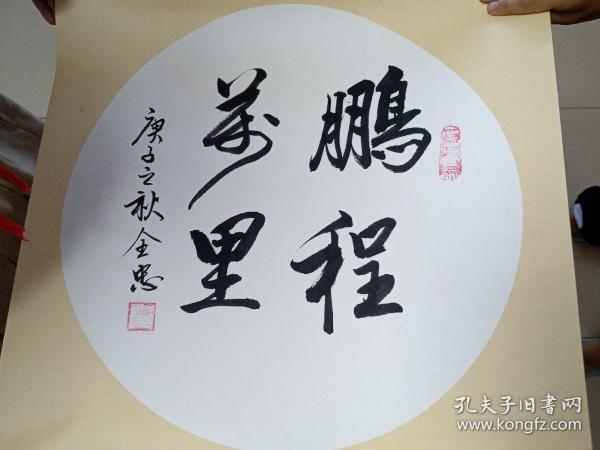 鵬程
萬里
庚子之秋全忠
孔夫子旧书网
www.kongfz.com